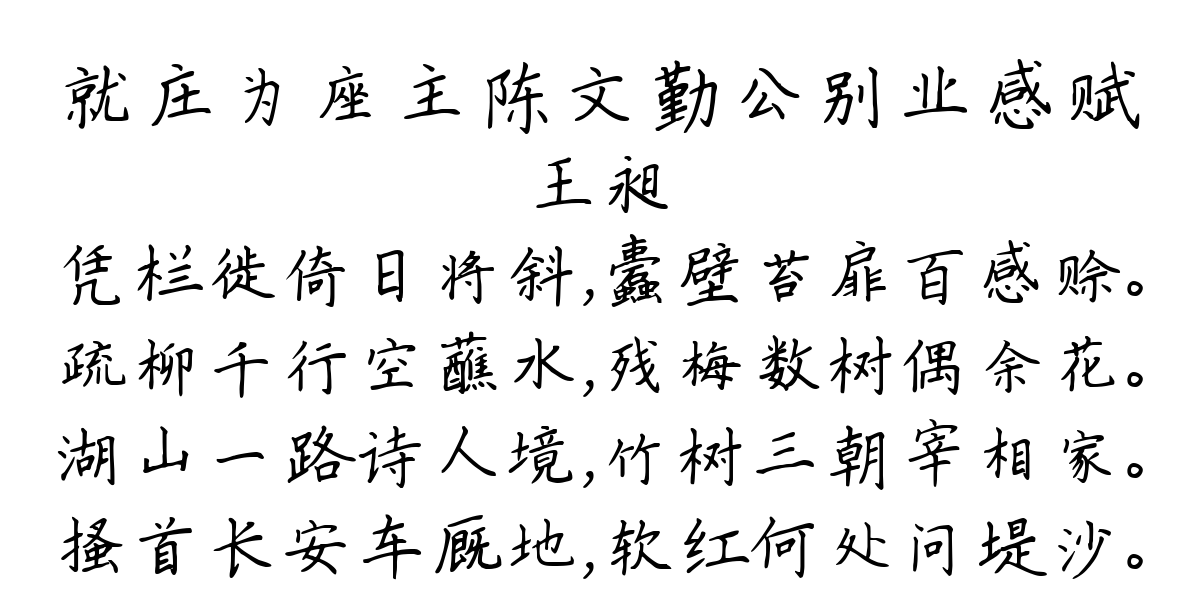 就庄为座主陈文勤公别业感赋
王昶
凭栏徙倚日将斜,蠹壁苔扉百感赊。
疏柳千行空蘸水,残梅数树偶余花。
湖山一路诗人境,竹树三朝宰相家。
搔首长安车厩地,软红何处问堤沙。